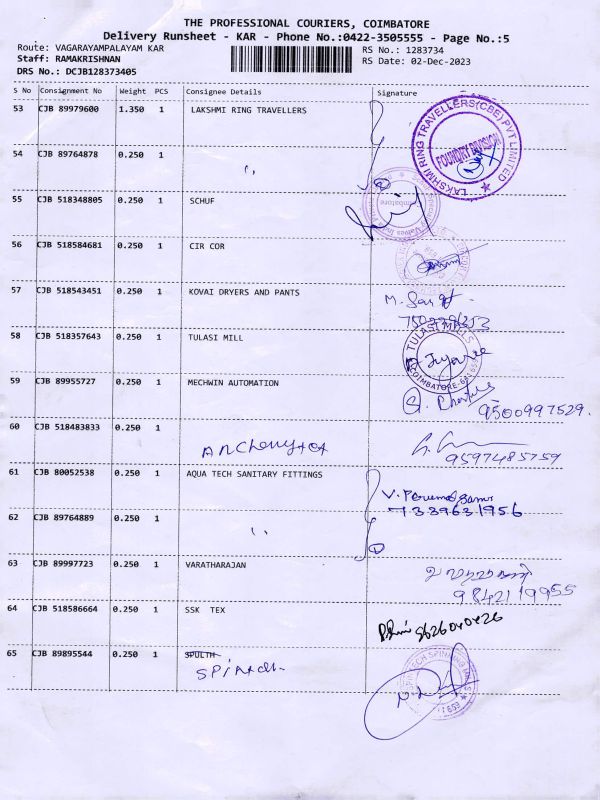 THE PROFESSIONAL COURIERS, COIMBATORE
Delivery Runsheet - KAR - Phone No.:0422-3505555 - Page No.:5
Route: VAGARAYAMPALAYAM KAR RS No.: 1283734
Staff: RAMAKRISHNAN RS Date: 02-Dec-2023
DRS No.: DCJB128373405
S No Consignment No Weight PCS Consignee Details Signature
53 CJB 89979600 1.350 1 LAKSHMI RING TRAVELLERS
LAKSHMI RING TRAVELLERS (CBE) PVT LIMITED
FOUNDRY DIVISION
54 CJB 89764878 0.250 1 "
55 CJB 518348805 0.250 1 SCHUF
Coimbatore
56 CJB 518584681 0.250 1 CIR COR
57 CJB 518543451 0.250 1 KOVAI DRYERS AND PANTS
58 CJB 518357643 0.250 1 TULASI MILL
TULASI MILLS
59 CJB 89955727 0.250 1 MECHWIN AUTOMATION
9500997529.
60 CJB 518483833 0.250 1
9597485759
61 CJB 80052538 0.250 1 AQUA TECH SANITARY FITTINGS
7339631956
62 CJB 89764889 0.250 1 "
63 CJB 89997723 0.250 1 VARATHARAJAN
9842119955
64 CJB 518586664 0.250 1 SSK TEX
65 CJB 89895544 0.250 1 SPULTH